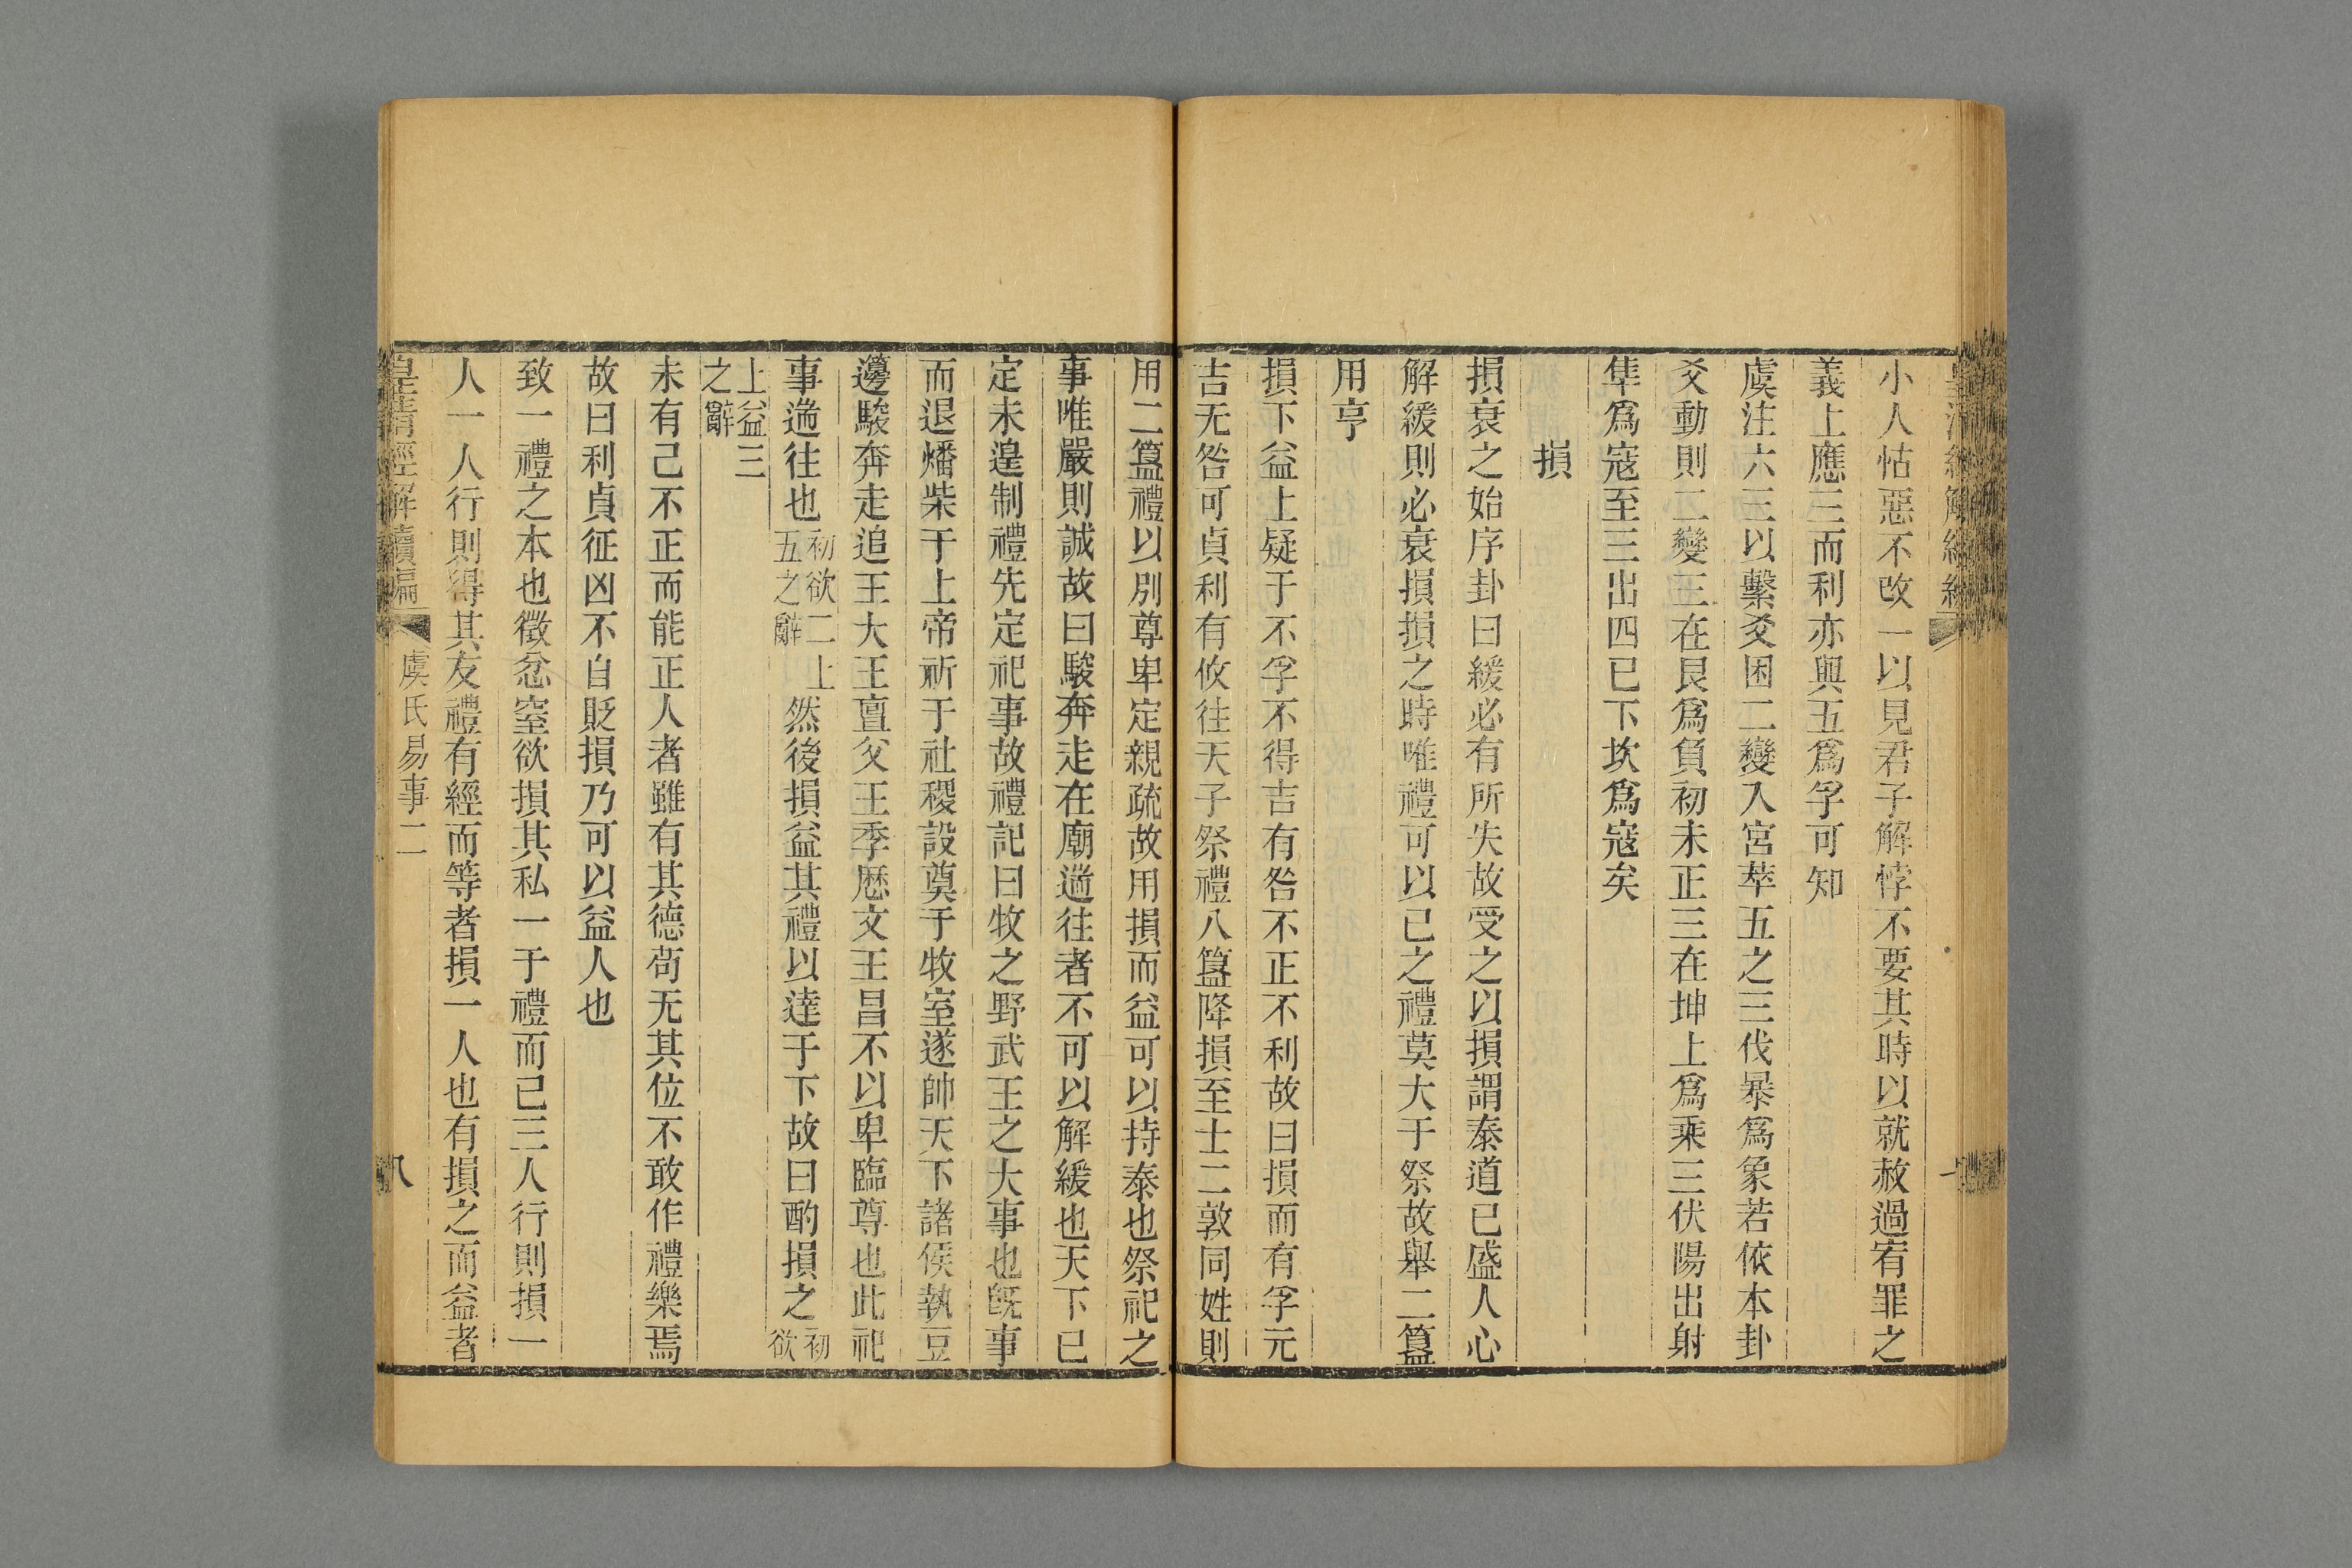 小人怙惡不改一以見君子解悖不要其時以就赦過宥罪之
義上應三而利亦與五爲孚可知
虞注六三以繫爻困二變入宮萃五之三伐暴爲象若依本卦
爻動則二變三在艮爲負初未正三在坤上爲乘三伏陽出射
隼爲寇至三出四已下坎爲寇矣
損
損衰之始序卦曰緩必有所失故受之以損謂泰道已盛人心
解緩則必衰損損之時唯禮可以已之禮莫大于祭故舉二簋
用亨
損下益上疑于不孚不得吉有咎不正不利故曰損而有孚元
吉无咎可貞利有攸往天子祭禮八簋降損至士二敦同姓則
用二簋禮以別尊卑定親疏故用損而益可以持泰也祭祀之
事唯嚴則誠故曰駿奔走在廟遄往者不可以解緩也天下已
定未遑制禮先定祀事故禮記曰牧之野武王之大事也旣事
而退燔柴于上帝祈于社稷設奠于牧室遂帥天下諸侯執豆
籩駿奔走追王大王亶父王季歷文王昌不以卑臨尊也此祀
事遄往也初欲二上五之辭然後損益其禮以達于下故曰酌損之初欲
上益三之辭
未有己不正而能正人者雖有其德苟无其位不敢作禮樂焉
故曰利貞征凶不自貶損乃可以益人也
致一禮之本也徵忿窒欲損其私一于禮而已三人行則損一
人一人行則得其友禮有經而等者損一人也有損之而益者
皇清經解續編 虞氏易事二 八